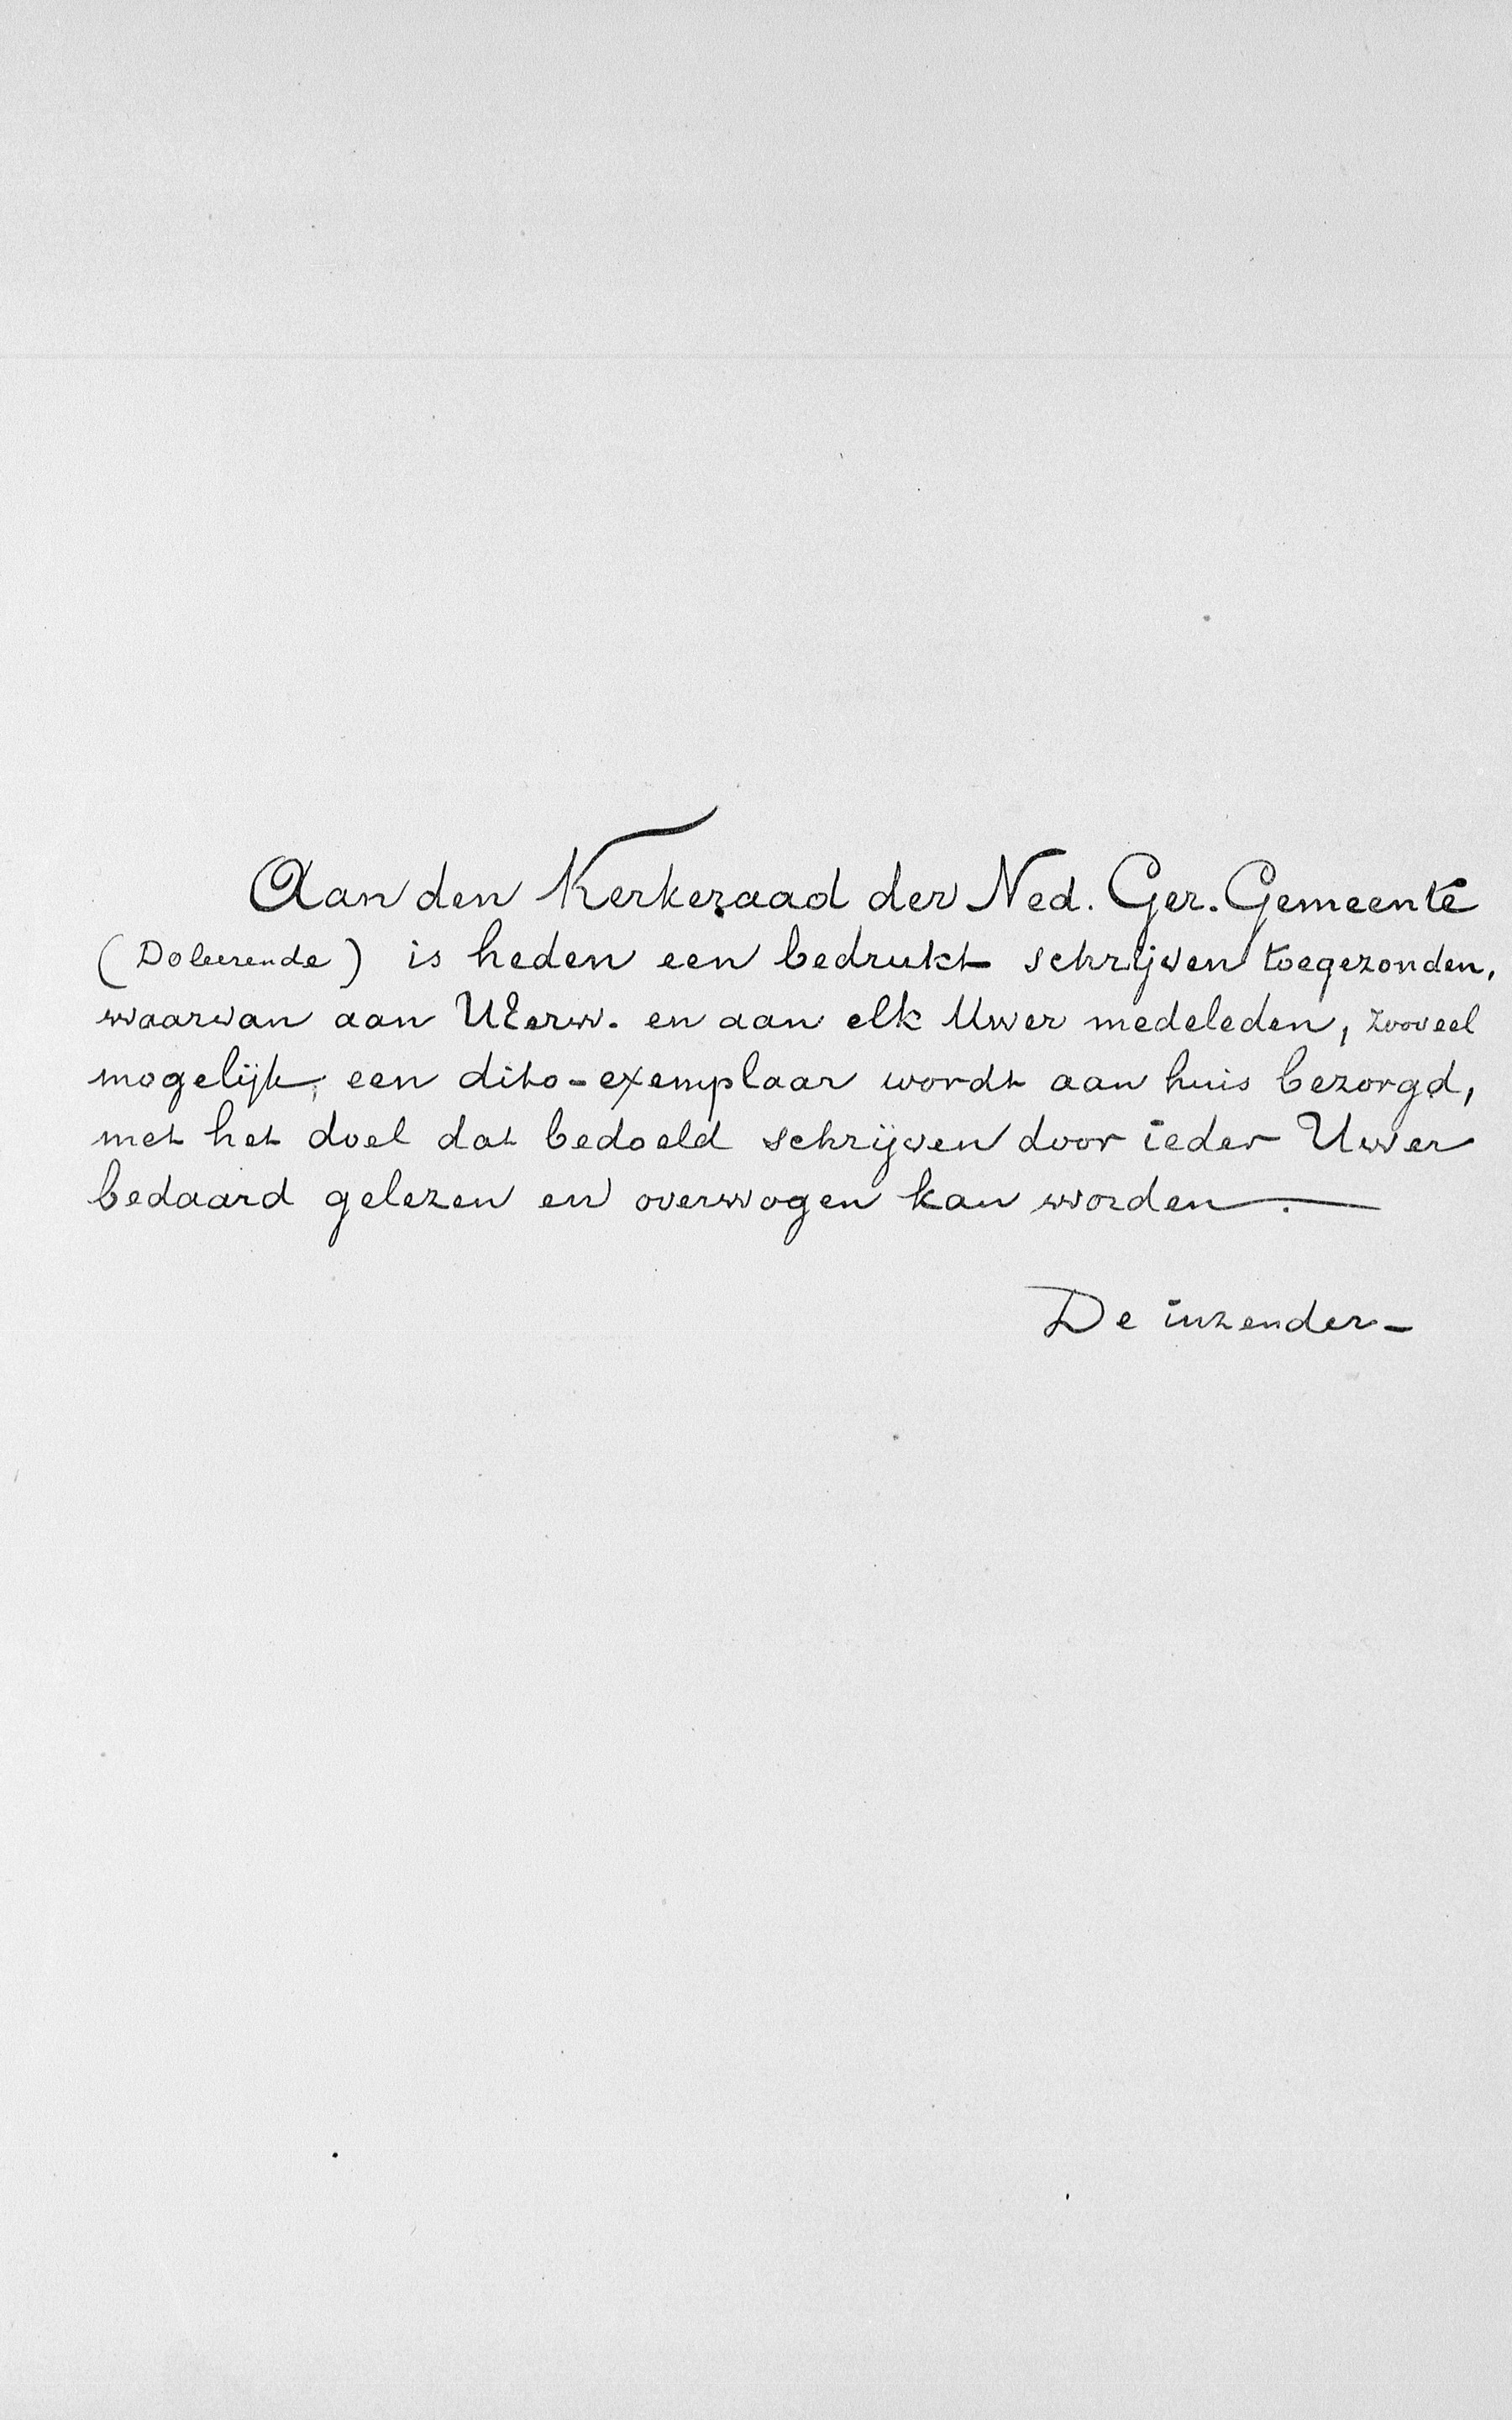 Aan den Kerkeraad der Ned. Ger. Gemeente
(Doleerende) is heden een bedrukt schrijven toegezonden,
waarvan aan UEerw. en aan elk Uwer medeleden, zooveel
mogelijk, een dito-exemplaar wordt aan huis bezorgd,
met het doel dat bedoeld schrijven door ieder Uwer
bedaard gelezen en overwogen kan worden.—
De inzender—